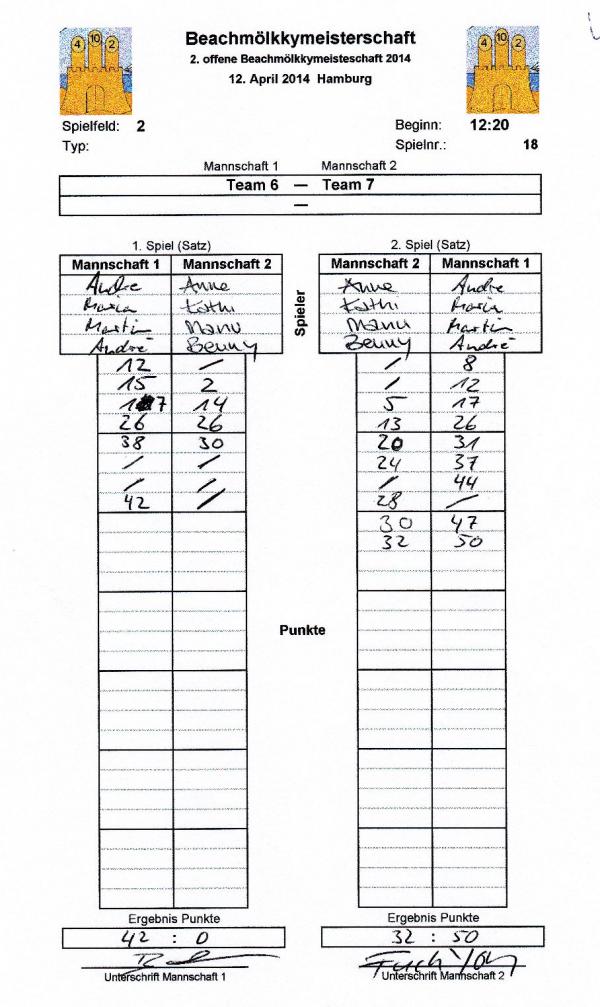 4 10 2
Beachmölkkymeisterschaft
4 10 2
2. offene Beachmölkkymeisteschaft 2014
12. April 2014 Hamburg
Spielfeld: 2 Beginn: 12:20
Typ: Spielnr.: 18
Mannschaft 1 Mannschaft 2
Team 6 — Team 7
—
1. Spiel (Satz) 2. Spiel (Satz)
Mannschaft 1 Mannschaft 2 Mannschaft 2 Mannschaft 1
Andre Anne Anne Andre
Maria Kathi Kathi Maria
Martin Manu Manu Martin
André Benny Benny André
Spieler
12 / / 8
15 2 / 12
17 14 5 17
26 26 13 26
38 30 20 31
/ / 24 37
/ / / 44
42 / 28 /
30 47
32 50
Punkte
Ergebnis Punkte Ergebnis Punkte
42 : 0 32 : 50
Unterschrift Mannschaft 1 Unterschrift Mannschaft 2